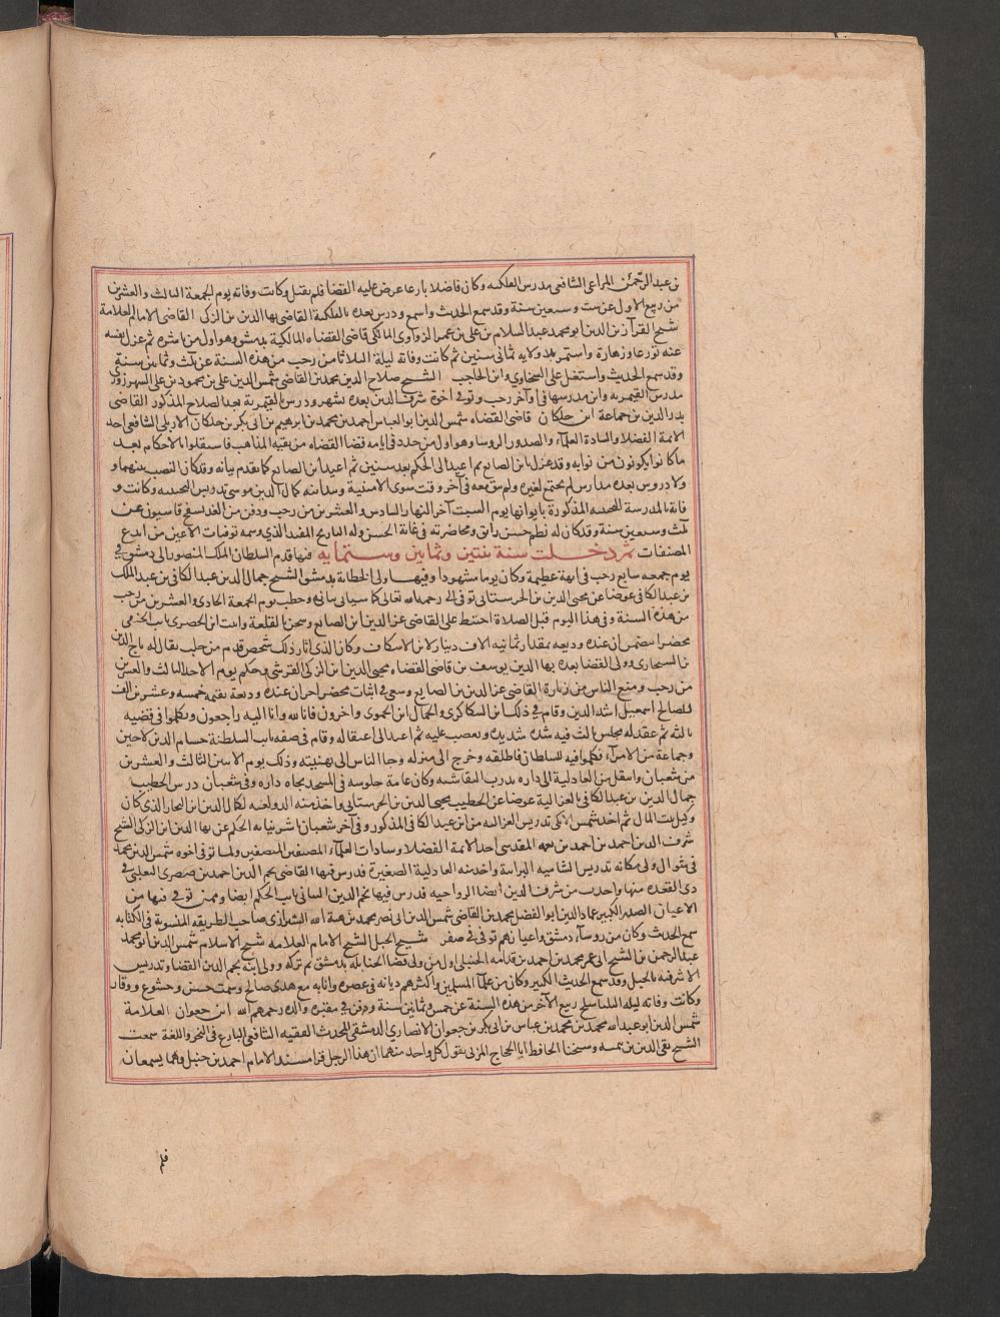 بن عبد الرحمن المراغي الشافعي مدرس الفلكيه وكان فاضلا بارعا عرض عليه القضا فلم يقبل وكانت وفاته يوم الجمعة الثالث والعشرين
من ربيع الاول عن ست وسبعين سنة وقد سمع الحديث واسمع ودرس بعده بالفلكية القاضي بها الدين بن الزكي القاضي الامام العلامة
شيخ القرآ زين الدين ابو محمد عبد السلام بن علي بن عمر الزواوى المالكي قاضي القضاه المالكية بدمشق وهو اول من باشره ثم عزل نفسه
عنه تورعا وزهادة واستمر بلا ولايه ثماني سنين ثم كانت وفاته ليلة الثلاثا من رجب من هذه السنة عن ثلث وثمانين سنة
وقد سمع الحديث واشتغل على السخاوي وابن الحاجب الشيخ صلاح الدين محمد بن القاضي شمس الدين علي بن محمود بن علي الشهرزوري
مدرس القيمريه وابن مدرسها في وآخر رجب وتوفي اخوه شرف الدين بعده بشهر ودرس القيمرية بعد الصلاح المذكور القاضي
بدر الدين بن جماعة ابن خلكان قاضي القضاه شمس الدين ابو العباس احمد بن محمد بن ابرهيم بن ابي بكر بن خلكان الاربلي الشافعي احد
الايمة الفضلا والسادة العلمآء والصدور الروسا وهو اول من جدد في ايامه قضا القضاه من بقية المذاهب فاستقلوا بالاحكام بعد
ما كانوا يكونون من نوابه وقد عزل بابن الصايغ ثم اعيد الى الحكم بعد سنين ثم اعيد ابن الصايغ كما تقدم بيانه وقد كان المنصب بينهما و
ولا دروس بعده مدارس لم يجتمع لغيره ولم يبق معه في آخر وقت سوى الامنية وبيد ابنه كمال الدين موسى تدريس النجيبيه وكانت و
فاته بالمدرسة النجيبيه المذكورة بايوانها يوم السبت آخر النهار السادس والعشرين من رجب ودفن من الغد بسفح قاسيون عن
ثلث وسبعين سنة وقد كان له نظم حسن رايق ومحاضرته في غاية الحسن وله التاريخ المفيد الذي وسمه توفيات الاعيان من ابدع
المصنفات ثم دخلت سنة ثنتين وثمانين وستمايه فيها قدم السلطان الملك المنصور الى دمشق في
يوم جمعه سابع رجب في ابهة عظيمة وكان يوما مشهودا وفيها ولي الخطابة بدمشق الشيخ جمال الدين عبد الكافي بن عبد الملك
بن عبد الكافي عوضا عن محيي الدين بن الحرستاني توفي الى رحمه الله تعالى كما سياتي بيانه وخطب يوم الجمعة الحادي والعشرين من رجب
من هذه السنة وفي هذا اليوم قبل الصلاة احتيط على القاضي عز الدين ابن الصايغ وسجن بالقلعة واثبت ابن الحصري نايب الحنفي
محضرا يتضمن ان عنده وديعه بمقدار ثمانيه الاف دينار لابن الاسكاف وكان الذي اثار ذلك شخص قدم من حلب يقال له تاج الدين
بن السنجارى وولي القضا بعده بها الدين يوسف بن قاضي القضاه محيي الدين ابن الزكي القرشي وحكم يوم الاحد الثالث والعشرين
من رجب ومنع الناس من زيارة القاضي عز الدين بن الصايغ وسعي في اثبات محضر اخر ان عنده وديعة بقيمه خمسه وعشرين الف
للصالح اسمعيل اسد الدين وقام في ذلك ابن الساكري والجمال ابن الحموى واخرون فانا لله وانا اليه راجعون وتكلموا في قضيه
ثالثه ثم عقد له مجلس نالت فيه شده شديده وتعصب عليه ثم اعيد الى اعتقاله وقام في صفه نايب السلطنة حسام الدين لاجين
وجماعة من الامرآء فكلموا فيه السلطان فاطلقه وخرج الى منزله وجا الناس الى تهنيته وذلك يوم الاثنين الثالث والعشرين
من شعبان وانتقل من العادلية الى داره بدرب النقاشه وكان عامة جلوسه في المسجد تجاه داره وفي شعبان درس الخطيب
جمال الدين بن عبد الكافي بالغزالية عوضا عن الخطيب محيي الدين بن الحرستاني واخذ منه الدولعيه لكمال الدين ابن النجار الذي كان
وكيل بيت المال ثم اخذ شمس الايكي تدريس الغزاليه من ابن عبد الكافي المذكور وفي آخر شعبان باشر نيابه الحكم عن بها الدين ابن الزكي الشيخ
شرف الدين احمد بن احمد بن نعمه المقدسي احد الايمة الفضلا وسادات العلمآء المصنفين المنصفين ولما توفي اخوه شمس الدين محمد
في شوال ولي مكانه تدريس الشاميه البرانية واخذ منه العادلية الصغيرة فدرس فيها القاضي نجم الدين احمد بن صصرى التغلبي في
ذي القعده منها واخذت من شرف الدين ايضا الرواحيه فدرس فيها نجم الدين البياني نايب الحكم ايضا وممن توفي فيها من
الاعيان الصدر الكبير عماد الدين ابو الفضل محمد بن القاضي شمس الدين ابي نصر محمد بن هبة الله الشيرازي صاحب الطريقه المنسوبة في الكتابه
سمع الحديث وكان من روسآء دمشق واعيانهم توفي في صفر شيخ الجبل الشيخ الامام العلامه شيخ الاسلام شمس الدين ابو محمد
عبد الرحمن بن الشيخ ابي عمر محمد بن احمد بن قدامه الحنبلي اول من ولي قضا الحنابله بدمشق ثم تركه وولي ابنه نجم الدين القضا وتدريس
الاشرفيه بالجبل وقد سمع الحديث الكبير وكان من علمآء المسلمين واكثرهم ديانه في عصره وانابه مع هدى صالح وسمت حسن وخشوع ووقار
وكانت وفاته ليله الثلثا سلخ ربيع الآخر من هذه السنة عن خمسة وثمانين سنة ودفن في مقبره والده رحمهم الله ابن جعوان العلامة
شمس الدين ابو عبد الله محمد بن محمد بن عباس بن ابي بكر بن جعوان الانصاري الدمشقي المحدث الفقيه الشافعي البارع في النحو واللغة سمعت
الشيخ تقي الدين بن تيميه وشيخنا الحافظ ابا الحجاج المزي يقول كل واحد منهما ان هذا الرجل قرا مسند الامام احمد بن حنبل وهما يسمعان
فلم